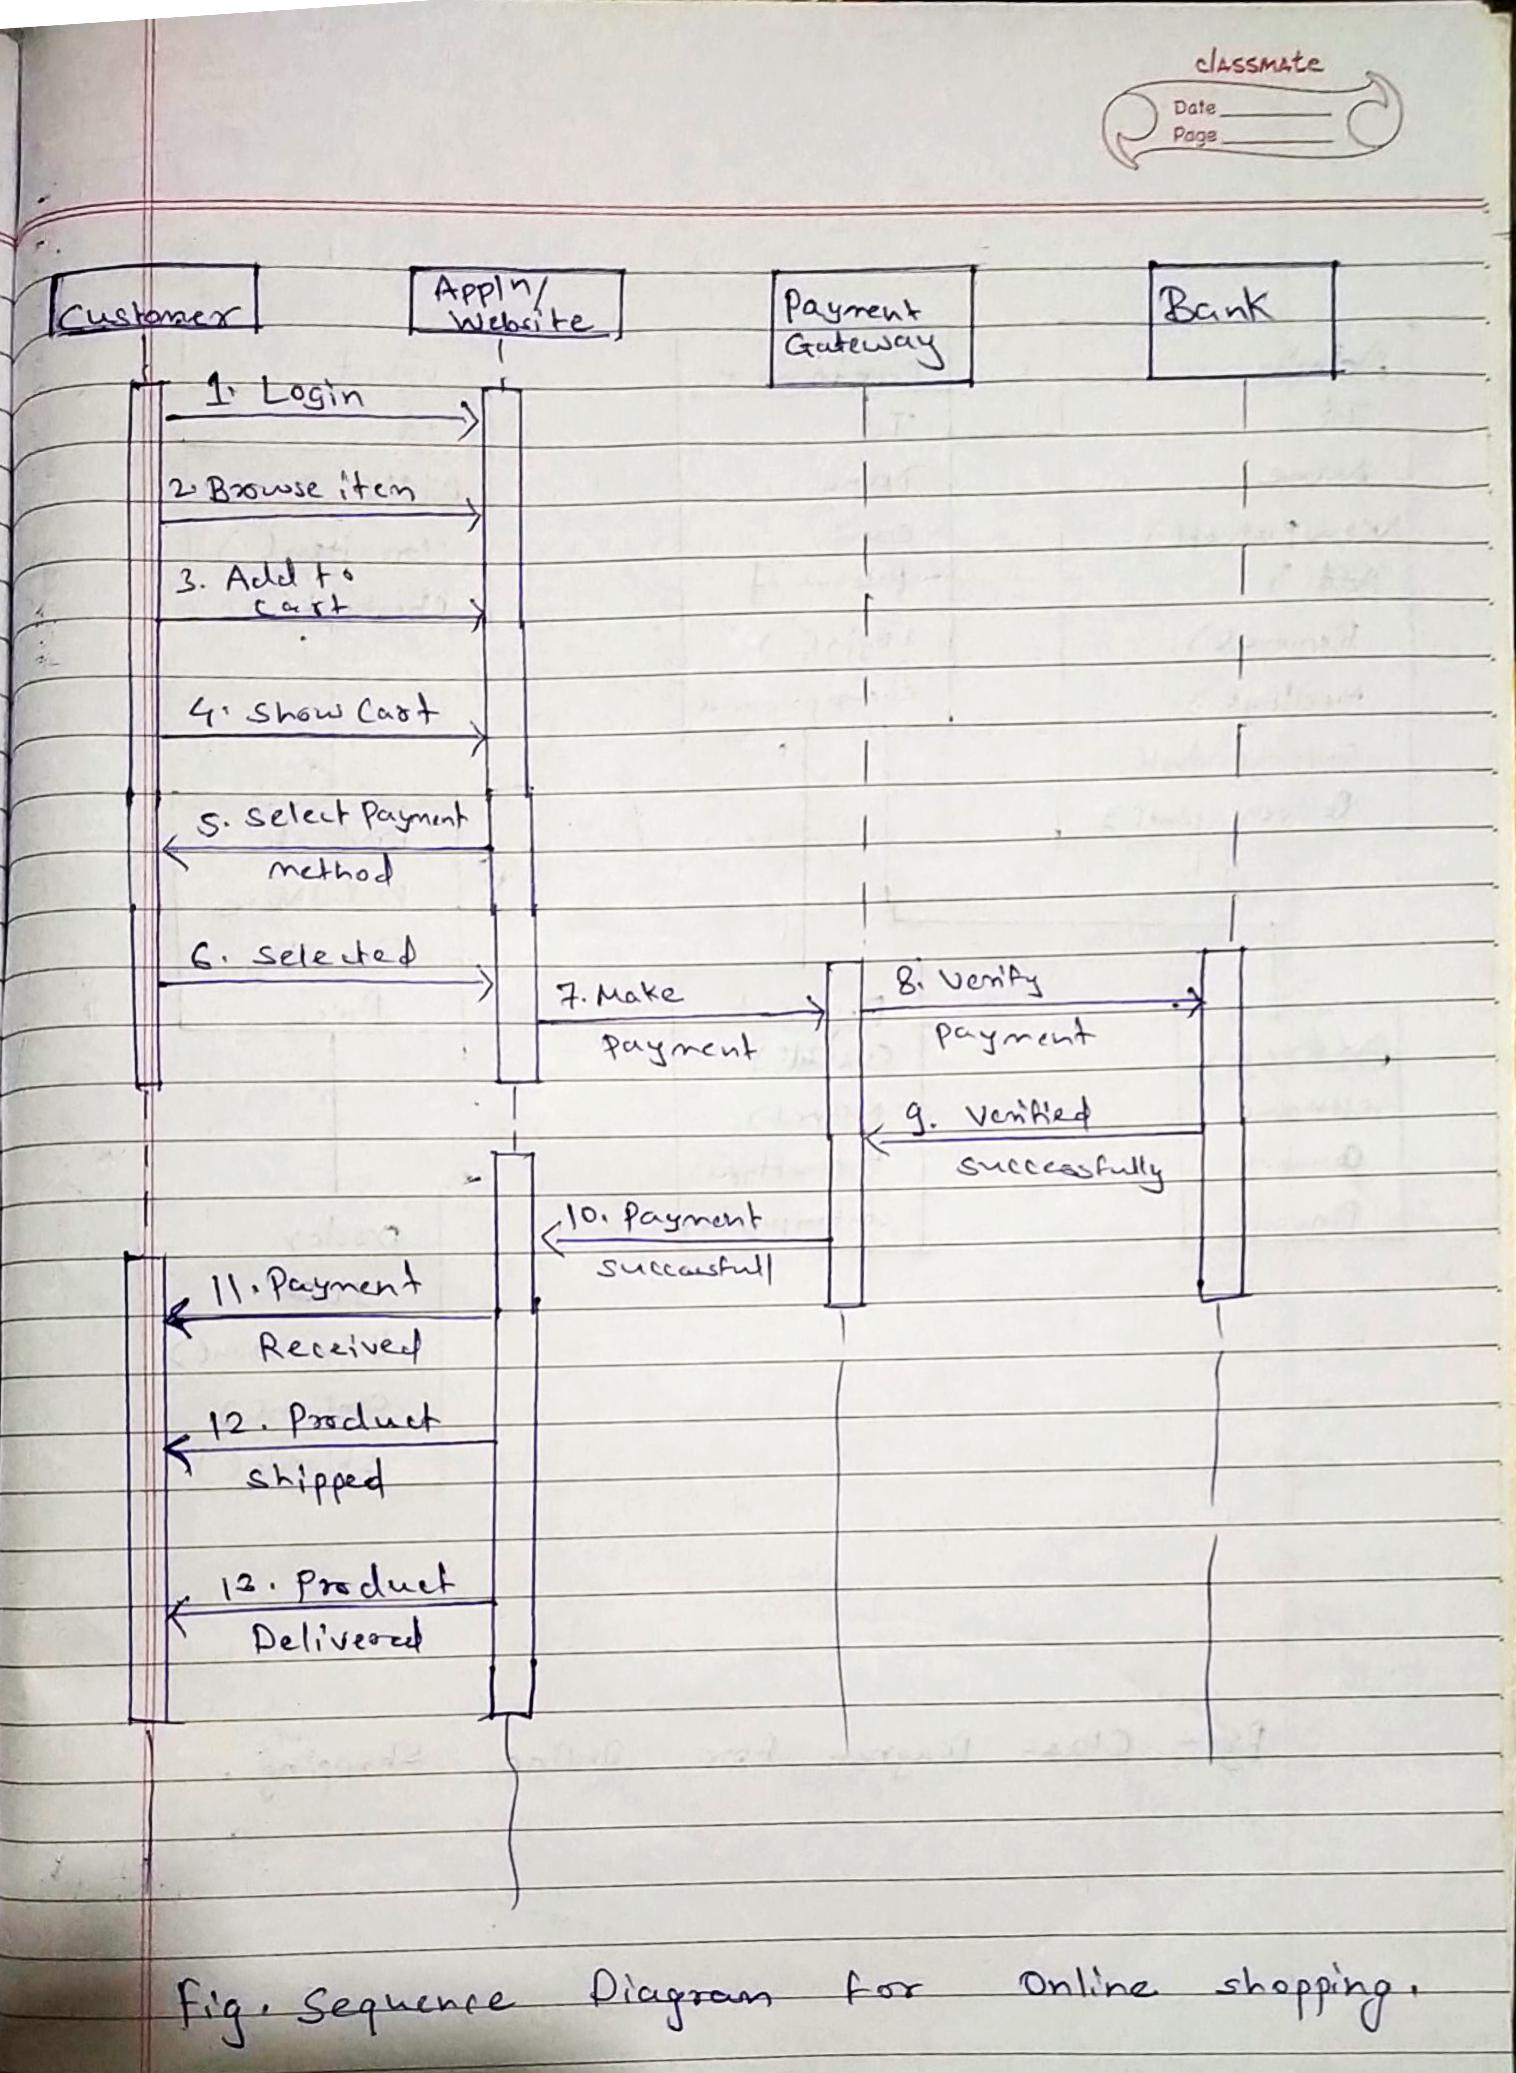 classmate
Date
Page
Customer
Appln/
Website
Payment
Gateway
Bank
1. Login
2. Browse item
3. Add to
cart
4. Show Cart
5. Select Payment
method
6. Selected
7. Make
Payment
8. Verify
Payment
9. Verified
successfully
10. Payment
successfull
11. Payment
Received
12. Product
Shipped
13. Product
Delivered
Fig. Sequence Diagram for Online shopping.